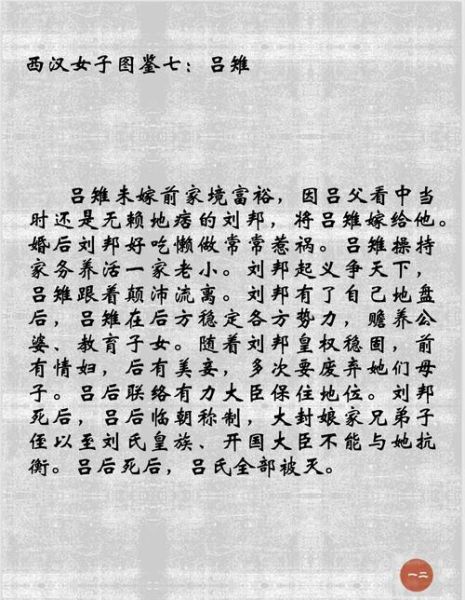 西汉女子图鉴七：吕雉
吕雉未嫁前家境富裕，因吕父看中当
时还是无赖地痞的刘邦，将吕雉嫁给他。
婚后刘邦好吃懒做常常惹祸。吕雉操持
家务养活一家老小。刘邦起义争天下，
吕雉跟着颠沛流离。刘邦有了自己地盘
后，吕雉在后方稳定各方势力，赡养公
婆、教育子女。随着刘邦皇权稳固，前
有情妇，后有美妾，多次要废弃她们母
子。吕后联络有力大臣保住地位。刘邦
死后，吕后临朝称制，大封娘家兄弟子
侄以至刘氏皇族、开国大臣不能与她抗
衡。吕后死后，吕氏全部被灭。
一二